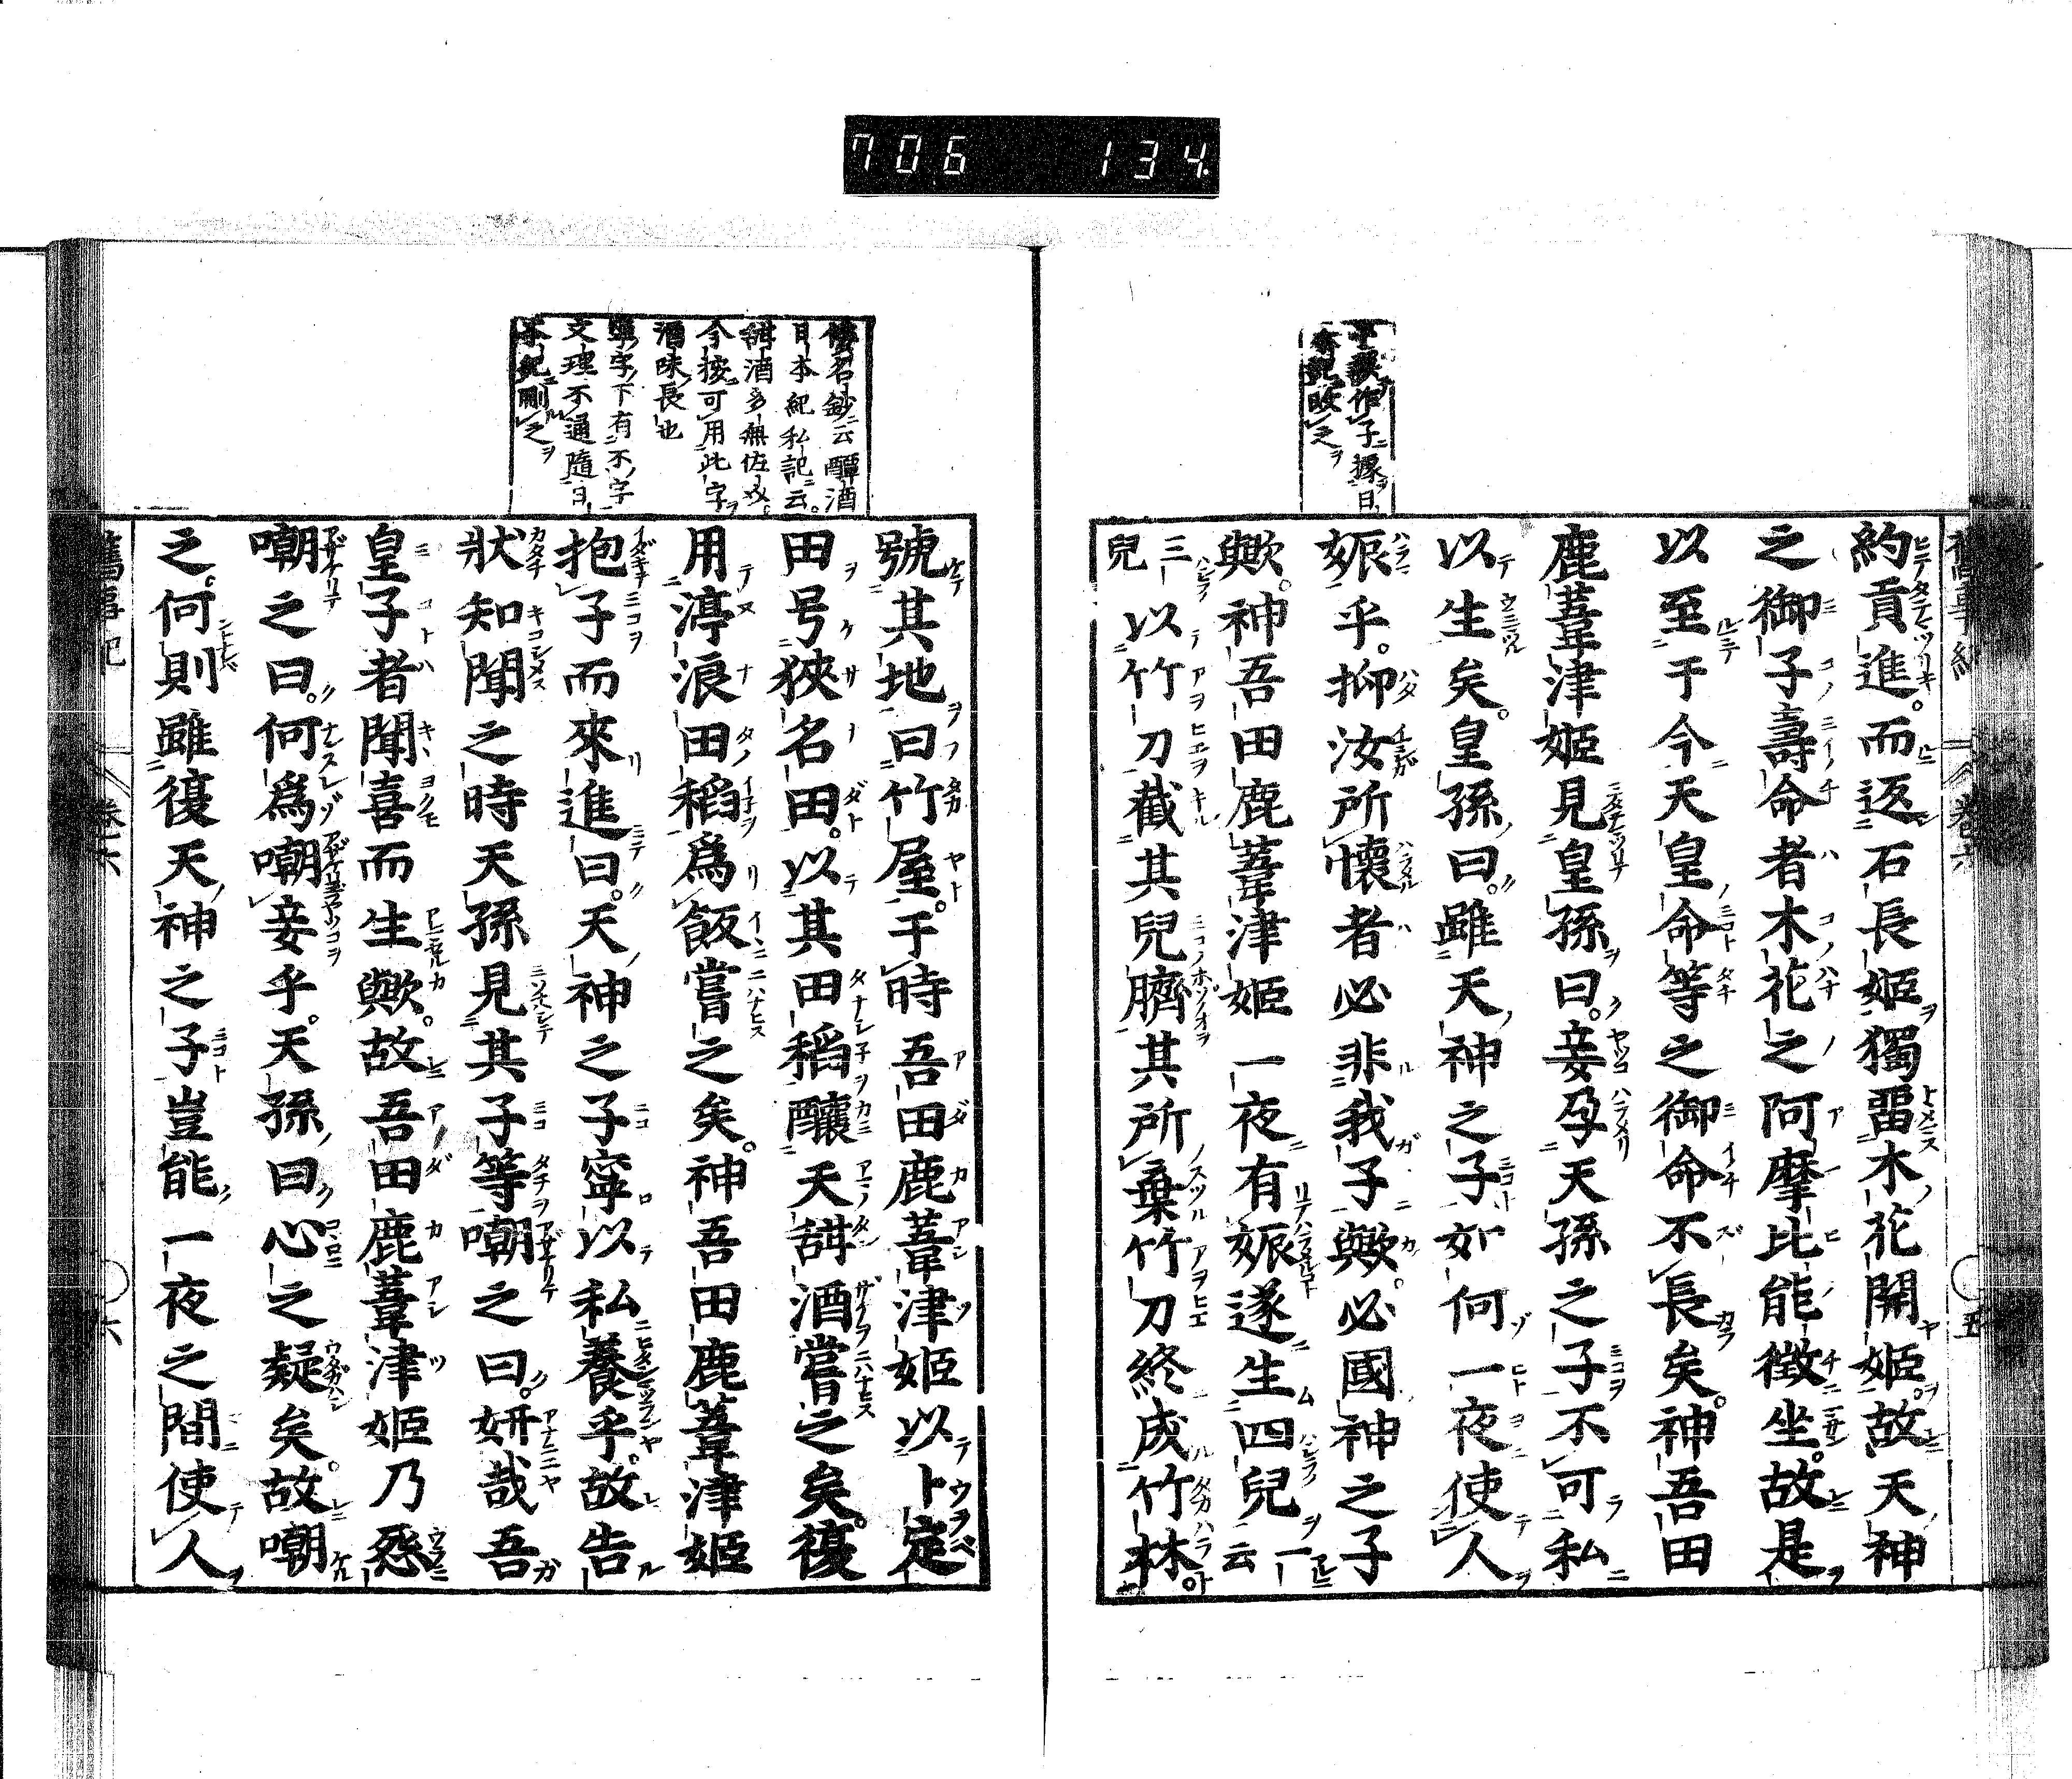 706 134
約貢進。而返石長姫獨畱木花開姫。故天神
之御子壽命者木花之阿摩比能徴坐。故是
以至于今天皇命等之御命不長矣。神吾田
鹿葦津姫見皇孫曰。妾孕天孫之子不可私
以生矣。皇孫曰。雖天神之子如何一夜使人
娠乎。抑汝所懷者必非我子歟。必國神之子
歟。神吾田鹿葦津姫一夜有娠遂生四兒一云
三兒以竹刀截其兒臍其所棄竹刀終成竹林。
號其地曰竹屋。于時吾田鹿葦津姫以卜定
田号狹名田。以其田稻釀天甜酒嘗之矣。復
用渟浪田稻爲飯嘗之矣。神吾田鹿葦津姫
抱子而來進曰。天神之子寧以私養乎。故告
狀知聞之時天孫見其子等嘲之曰。妍哉吾
皇子者聞喜而生歟。故吾田鹿葦津姫乃怨
嘲之曰。何爲嘲妾乎。天孫曰心之疑矣。故嘲
之。何則雖復天神之子豈能一夜之間使人
作子據日
紀改之
倭名鈔云醰酒
日本紀私記云。
甜酒多無佐介。
今按可用此字
酒味長也
寧字下有不字
文理不通隨日
本紀刪之
舊事紀 卷六 五
舊事紀 卷六 六